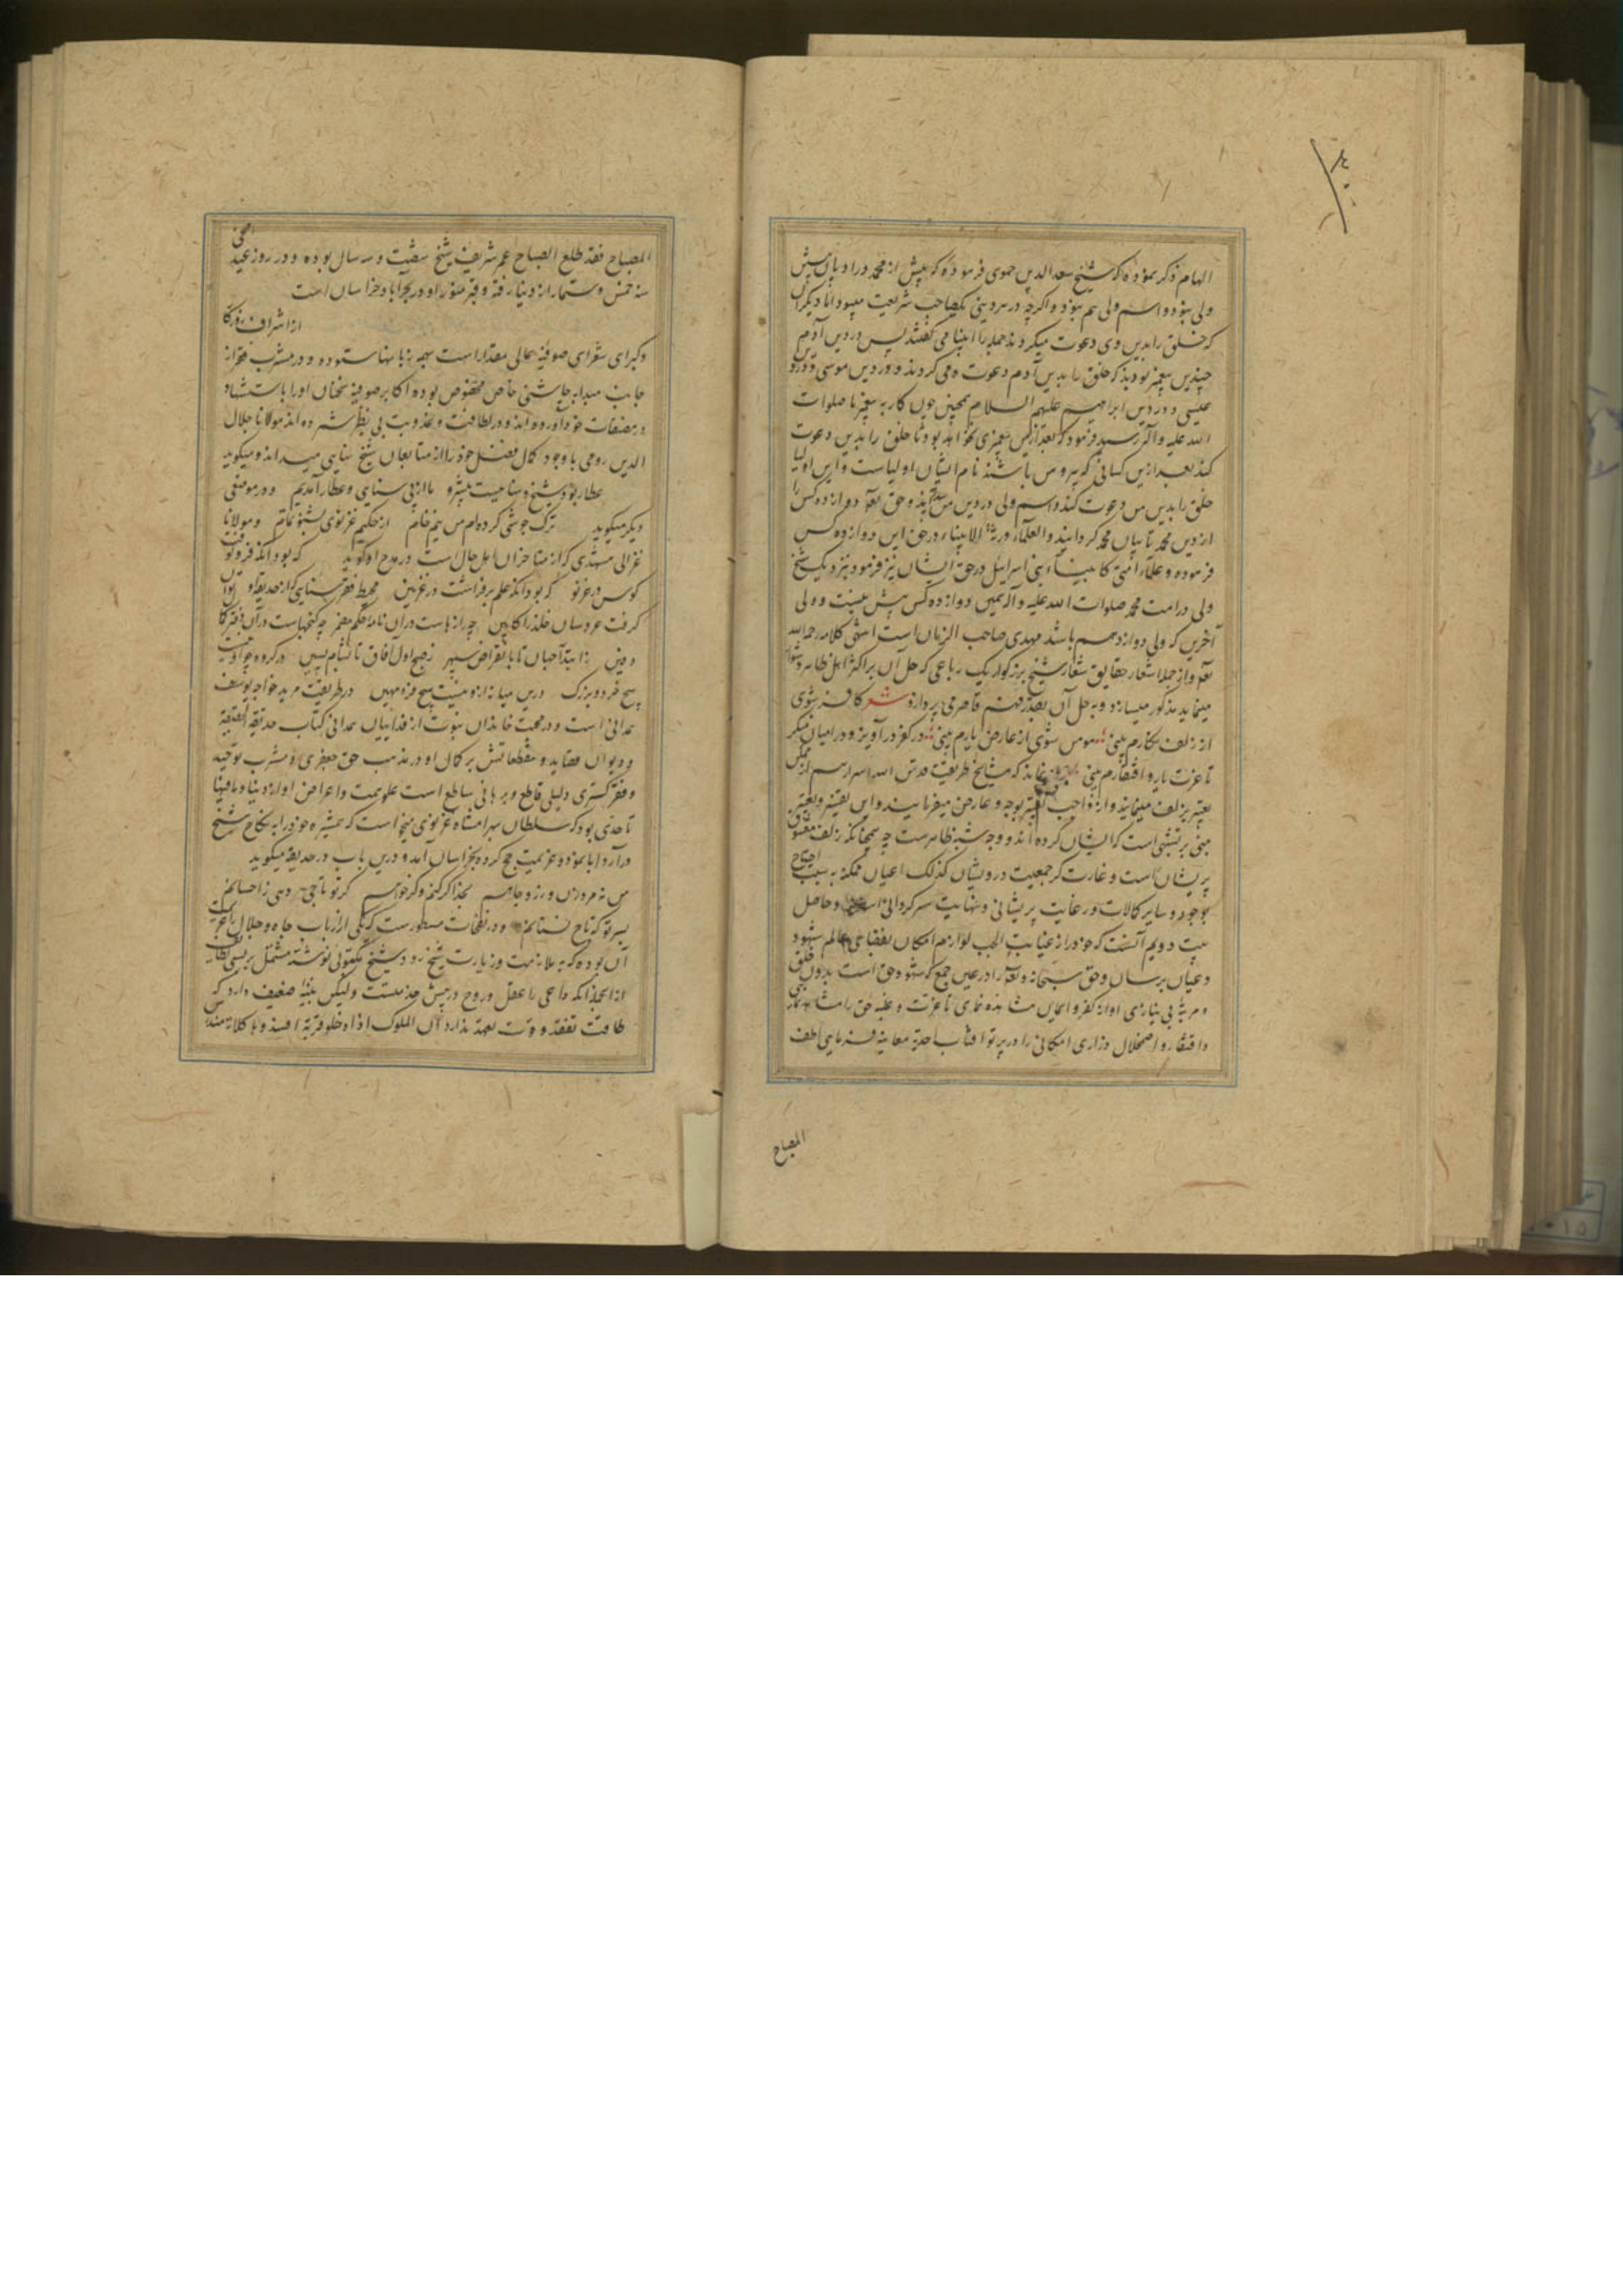 الهام ذکر نموده که شیخ سعد الدین حموی فرموده که پیش از محمد در ادیان پیش
ولی نبود و اسم ولی هم نبود و اگر چه در هر دینی یک صاحب شریعت میبود اما دیگران
که خلق را بدین وی دعوت میکردند جمله را انبیا می گفتند پس در دین آدم
چندین پیغمبر بودند که خلق را بدین آدم دعوت می کردند و در دین موسی و در دین
عیسی و در دین ابراهیم علیهم السلام همچنین چون کار به پیغمبر ما صلوات
الله علیه و آله رسید فرمود که بعد از من پیغمبری نخواهد بود تا خلق را بدین دعوت
کند بعد ازین کسانی که پیرو من باشند نام ایشان اولیاست و این اولیا
خلق را بدین من دعوت کنند و اسم ولی در دین من پدید آمد و حق تعه دوازده کس را
از دین محمد نایبان محمد گردانید و العلماء ورثة الانبیاء در حق این دوازده کس
فرموده و علماء امتی کانبیاء بنی اسرائیل در حق ایشان نیز فرمود بنزدیک شیخ
ولی در امت محمد صلوات الله علیه و آله همین دوازده کس بیش نیست و ولی
آخرین که ولی دوازدهم باشد مهدی صاحب الزمان است انتهی کلامه رحمه الله
تعه و از جمله اشعار حقایق شعار شیخ بزرگوار یک رباعی که حل آن بر اکثر اهل ظاهر دشوار
مینماید مذکور میسازد و به حل آن بقدر فهم قاصر می پردازد شعر کافر شوی
ار زلف نگارم بینی مومن شوی از عارض یارم بینی در کفر درآویز و در ایمان منگر
تا عزت یار و افتقارم بینی نماند که مشایخ طریقت قدس الله اسرارهم از ممکن
تعبیر بزلف مینمایند و از واجب تعبیر بوجه و عارض میفرمایند و این تعبیر
مبنی بر تشبیهی است که ایشان کرده اند و وجه شبه ظاهرست چه همچنانکه زلف معشوق
پریشان است و غارت گر جمعیت درویشان کذلک اعیان ممکنه به سبب احتیاج
بوجود و سایر کمالات در غایت پریشانی و نهایت سرگردانی اند و حاصل
بیت دویم آنست که خود را از غیابت الجب لوازم امکان بفضای عالم شهود
و عیان برسان و حق سبحانه و تعه را در عین جمع که شهود حق است بدون خلق
و مرتبه بی نیازی او از کفر و ایمان مشاهده نمای تا عزت و غلبه حق را مشاهده نمای
و افتقار و اضمحلال و زاری امکانی را در پرتو آفتاب احدیت معاینه فرمایی اطف
المصباح
المصباح فقد طلع الصباح عمر شریف شیخ شصت و سه سال بوده و در روز عید اضحی
سنه خمس و ستمایه از دنیا رفته و قبر منور او در بحراباد خراسان است
از اشراف بزرگان
و کبرای شعرای صوفیه عالی مقدار است بهمه زبانها ستوده و در مشرب
جانب مبدا به چاشنی خاص مخصوص بوده اکابر صوفیه سخنان او را باستشهاد
در مصنفات خود آورده اند و در لطافت و عذوبت بی نظیر شمرده اند مولانا جلال
الدین رومی با وجود کمال فضل خود را از متابعان شیخ سنایی میداند و میگوید
عطار بود شیخ و سناییست پیشرو ما از پی سنایی و عطار آمدیم و در موضعی
دیگر میگوید ترک جوشی کرده ام من نیم خام از حکیم غزنوی بشنو تمام و مولانا
غزالی مشهدی که از متاخران اهل حال است در مدح او گوید که بود آنکه فرو کوفت
کوس در غزنو که بود آنکه علم برفراشت در غزنین محیط فقر سنایی که از حدیقه او توان
گرفت عروسان خلد را کابین چه رازهاست در آن نامه حکم مضمر چه گنجهاست در آن دفتر
دفین ز ابتدا جهان تا بانقراض سپهر ز صبح اول آفاق تا بشام پسین درگروه چو او نیست
هیچ فرد و بزرگ درین میانه ازو نیست هیچ فرد مهین در طریقت مرید خواجه یوسف
همدانی است و در محبت خاندان نبوت از فداییان همدانی کتاب حدیقة الحقیقة
و دیوان قصاید و مقطعاتش بر کمال او در مذهب حق جعفری و مشرب توحید
و فقر گستری دلیلی قاطع و برهانی ساطع است علو همت و اعراض او از دنیا و مافیها
تا حدی بود که سلطان بهرامشاه غزنوی میخواست که همشیره خود را به نکاح شیخ
درآرد ابا نموده و عزیمت حج کرده بخراسان آمد و درین باب در حدیقه میگوید
من نه مرد زن و زر و جاهم بخدا گر کنم و گر خواهم گر تو تاجی دهی ز احسانم
بسر تو که تاج نستانم و در نفحات مسطورست که یکی از ارباب جاه و جلال را
آن بوده که به ملازمت و زیارت شیخ رود شیخ مکتوبی نوشته مشتمل بر بسی لطایف
از آنجمله آنکه داعی را عقل و روح در پیش خدمتست ولیکن بنیه ضعیف دارد که
طاقت تفقد و قوت تعهد ندارد ان الملوک اذا دخلوا قریة افسدوها کلاته مندرس